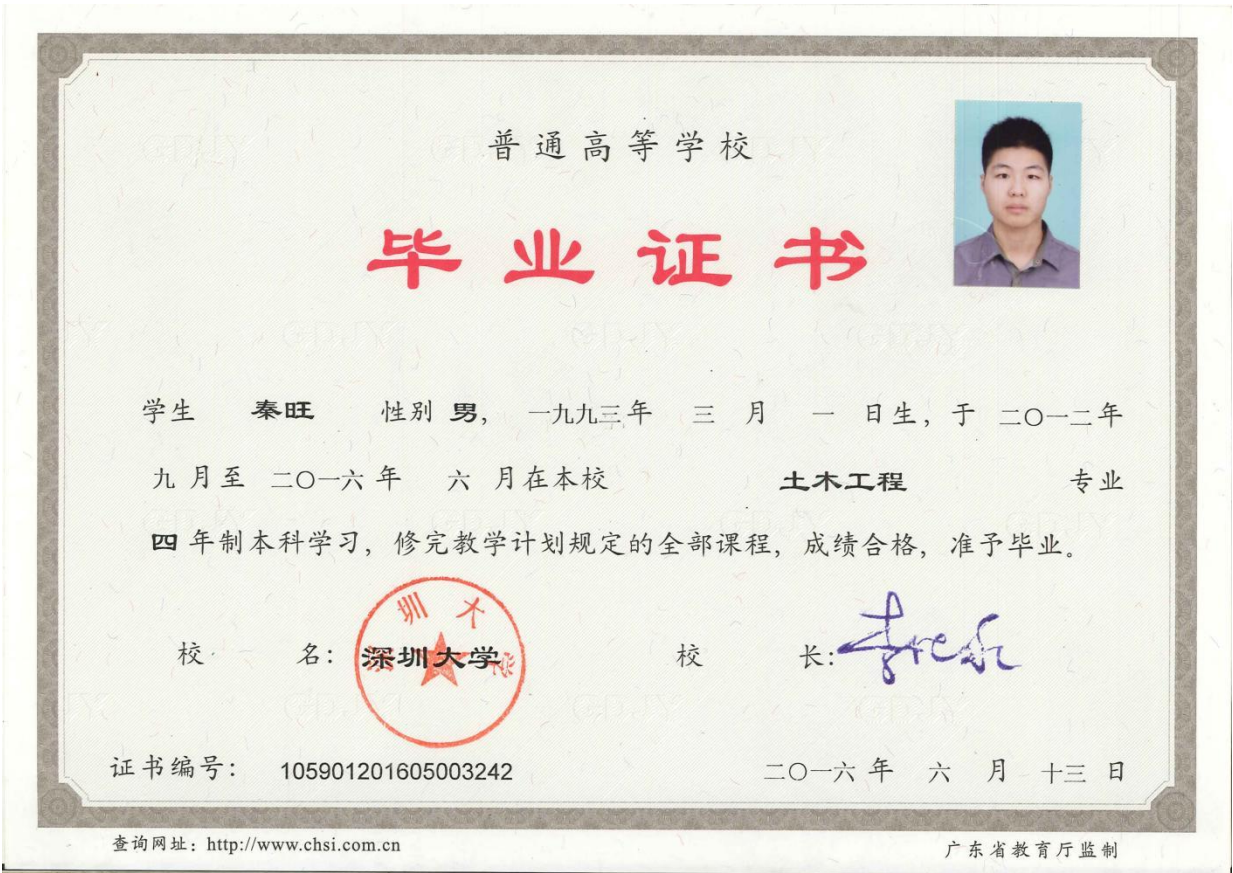 普通高等学校
毕业证书
学生 秦旺 性别 男， 一九九三年 三 月 一 日生，于 二〇一二年
九 月至 二〇一六年 六 月在本校 土木工程 专业
四 年制本科学习，修完教学计划规定的全部课程，成绩合格，准予毕业。
校 名：深圳大学 校 长：
深圳大学
证书编号： 105901201605003242 二〇一六年 六 月 十三 日
查询网址：http://www.chsi.com.cn 广东省教育厅监制